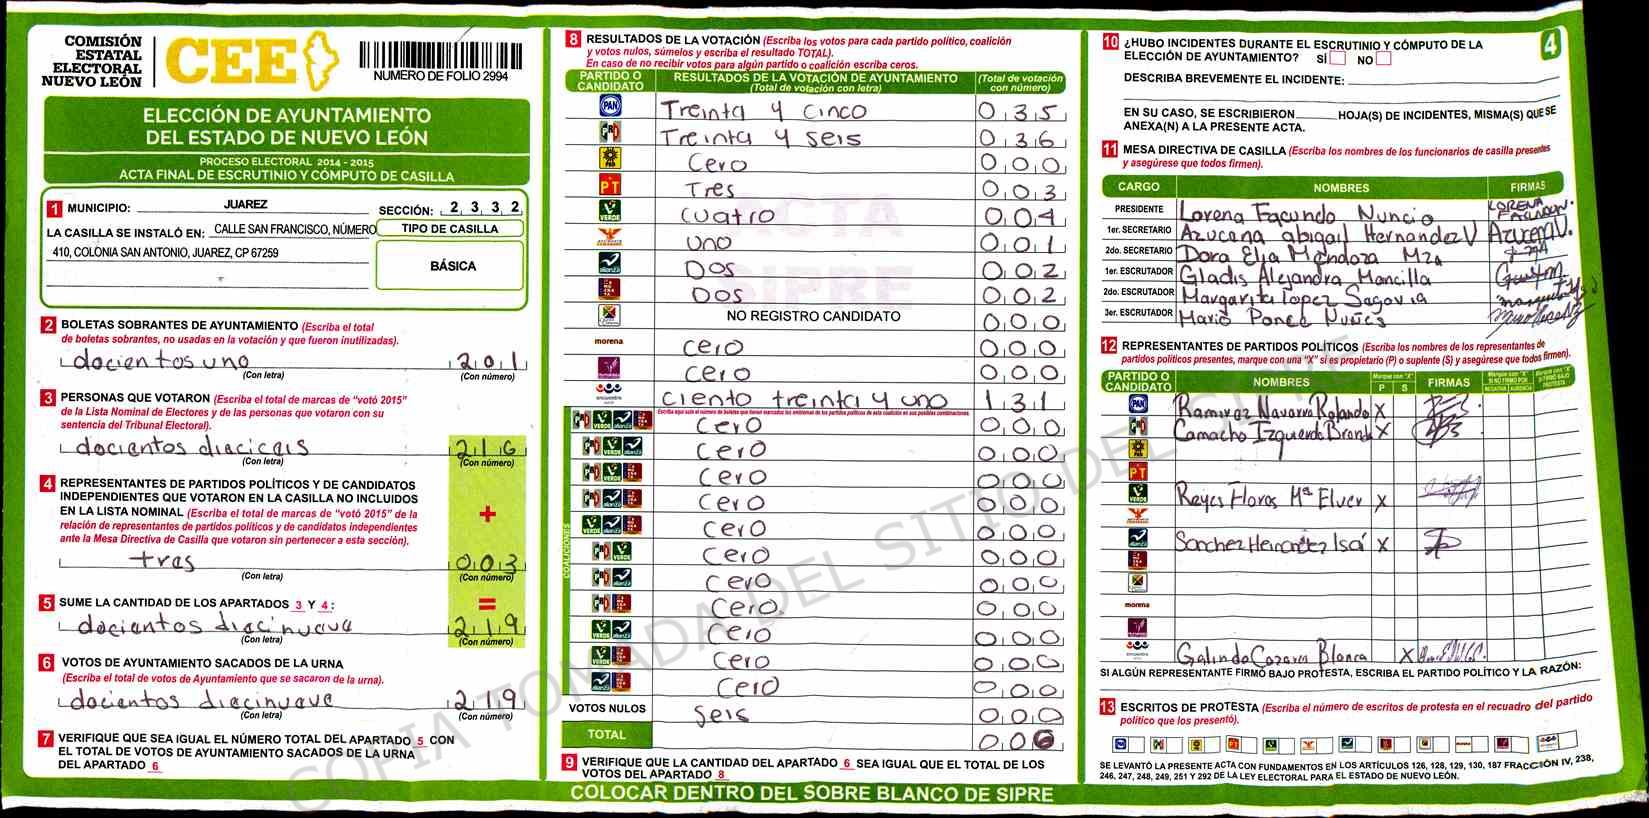 COMISIÓN
ESTATAL
ELECTORAL
NUEVO LEÓN
CEE
NUMERO DE FOLIO 2994
ELECCIÓN DE AYUNTAMIENTO
DEL ESTADO DE NUEVO LEÓN
PROCESO ELECTORAL 2014 - 2015
ACTA FINAL DE ESCRUTINIO Y CÓMPUTO DE CASILLA
1 MUNICIPIO: JUAREZ SECCIÓN: 2 3 3 2
LA CASILLA SE INSTALÓ EN: CALLE SAN FRANCISCO, NÚMERO
410, COLONIA SAN ANTONIO, JUAREZ, CP 67259
TIPO DE CASILLA
BÁSICA
2 BOLETAS SOBRANTES DE AYUNTAMIENTO (Escriba el total
de boletas sobrantes, no usadas en la votación y que fueron inutilizadas).
docientos uno 2 0 1
(Con letra) (Con número)
3 PERSONAS QUE VOTARON (Escriba el total de marcas de "votó 2015"
de la Lista Nominal de Electores y de las personas que votaron con su
sentencia del Tribunal Electoral).
docientos diecicais 2 1 6
(Con letra) (Con número)
4 REPRESENTANTES DE PARTIDOS POLÍTICOS Y DE CANDIDATOS
INDEPENDIENTES QUE VOTARON EN LA CASILLA NO INCLUIDOS
EN LA LISTA NOMINAL (Escriba el total de marcas de "votó 2015" de la
relación de representantes de partidos políticos y de candidatos independientes
ante la Mesa Directiva de Casilla que votaron sin pertenecer a esta sección).
+
tres 0 0 3
(Con letra) (Con número)
5 SUME LA CANTIDAD DE LOS APARTADOS 3 Y 4 : =
docientos diecinueve 2 1 9
(Con letra) (Con número)
6 VOTOS DE AYUNTAMIENTO SACADOS DE LA URNA
(Escriba el total de votos de Ayuntamiento que se sacaron de la urna).
docientos diecinueve 2 1 9
(Con letra) (Con número)
7 VERIFIQUE QUE SEA IGUAL EL NÚMERO TOTAL DEL APARTADO 5 CON
EL TOTAL DE VOTOS DE AYUNTAMIENTO SACADOS DE LA URNA
DEL APARTADO 6
8 RESULTADOS DE LA VOTACIÓN (Escriba los votos para cada partido político, coalición
y votos nulos, súmelos y escriba el resultado TOTAL).
En caso de no recibir votos para algún partido o coalición escriba ceros.
PARTIDO O CANDIDATO RESULTADOS DE LA VOTACIÓN DE AYUNTAMIENTO (Total de votación con letra) (Total de votación con número)
PAN Treinta y cinco 0 3 5
PRI Treinta y seis 0 3 6
PRD Cero 0 0 0
PT Tres 0 0 3
VERDE cuatro 0 0 4
uno 0 0 1
alianza DOS 0 0 2
DOS 0 0 2
NO REGISTRO CANDIDATO 0 0 0
morena cero 0 0 0
cero 0 0 0
encuentro ciento treinta y uno 1 3 1
Escriba aquí solo el número de boletas que tienen marcados los emblemas de los partidos políticos de esta coalición en sus posibles combinaciones.
COALICIONES
cero 0 0 0
cero 0 0 0
cero 0 0 0
cero 0 0 0
cero 0 0 0
cero 0 0 0
cero 0 0 0
cero 0 0 0
cero 0 0 0
cero 0 0 0
cero 0 0 0
VOTOS NULOS seis 0 0 0
TOTAL 0 0 6
9 VERIFIQUE QUE LA CANTIDAD DEL APARTADO 6 SEA IGUAL QUE EL TOTAL DE LOS
VOTOS DEL APARTADO 8
COLOCAR DENTRO DEL SOBRE BLANCO DE SIPRE
ACTA
SIPRE
COPIA TOMADA DEL SITIO DEL SIPRE
4
10 ¿HUBO INCIDENTES DURANTE EL ESCRUTINIO Y CÓMPUTO DE LA
ELECCIÓN DE AYUNTAMIENTO? SÍ NO
DESCRIBA BREVEMENTE EL INCIDENTE:
EN SU CASO, SE ESCRIBIERON HOJA(S) DE INCIDENTES, MISMA(S) QUE SE
ANEXA(N) A LA PRESENTE ACTA.
11 MESA DIRECTIVA DE CASILLA (Escriba los nombres de los funcionarios de casilla presentes
y asegúrese que todos firmen).
CARGO NOMBRES FIRMAS
PRESIDENTE Lorena Facundo Nuncio LORENA
1er. SECRETARIO Azucena abigail Hernandez V Azucena V.
2do. SECRETARIO Dora Elia Mendoza Mza
1er. ESCRUTADOR Gladis Alejandra Mancilla
2do. ESCRUTADOR Margarita lopez Segovia
3er. ESCRUTADOR Mario Ponce Nuñes
12 REPRESENTANTES DE PARTIDOS POLÍTICOS (Escriba los nombres de los representantes de
partidos políticos presentes, marque con una "X" si es propietario (P) o suplente (S) y asegúrese que todos firmen).
PARTIDO O CANDIDATO NOMBRES Marque con "X" P S FIRMAS Marque con "X" SI NO FIRMÓ POR NEGATIVA AUSENCIA Marque con "X" SI FIRMÓ BAJO PROTESTA
PAN Ramirez Navarro Rolando X
PRI Camacho Izquierdo Brenda X
PRD
PT
VERDE Reyes Flores Mª Elver X
alianza Sanchez Hernandez Isaí X
morena
encuentro Galindo Cazares Blanca X
SI ALGÚN REPRESENTANTE FIRMÓ BAJO PROTESTA, ESCRIBA EL PARTIDO POLÍTICO Y LA RAZÓN:
13 ESCRITOS DE PROTESTA (Escriba el número de escritos de protesta en el recuadro del partido
político que los presentó).
SE LEVANTÓ LA PRESENTE ACTA CON FUNDAMENTOS EN LOS ARTÍCULOS 126, 128, 129, 130, 187 FRACCIÓN IV, 238,
246, 247, 248, 249, 251 Y 292 DE LA LEY ELECTORAL PARA EL ESTADO DE NUEVO LEÓN.